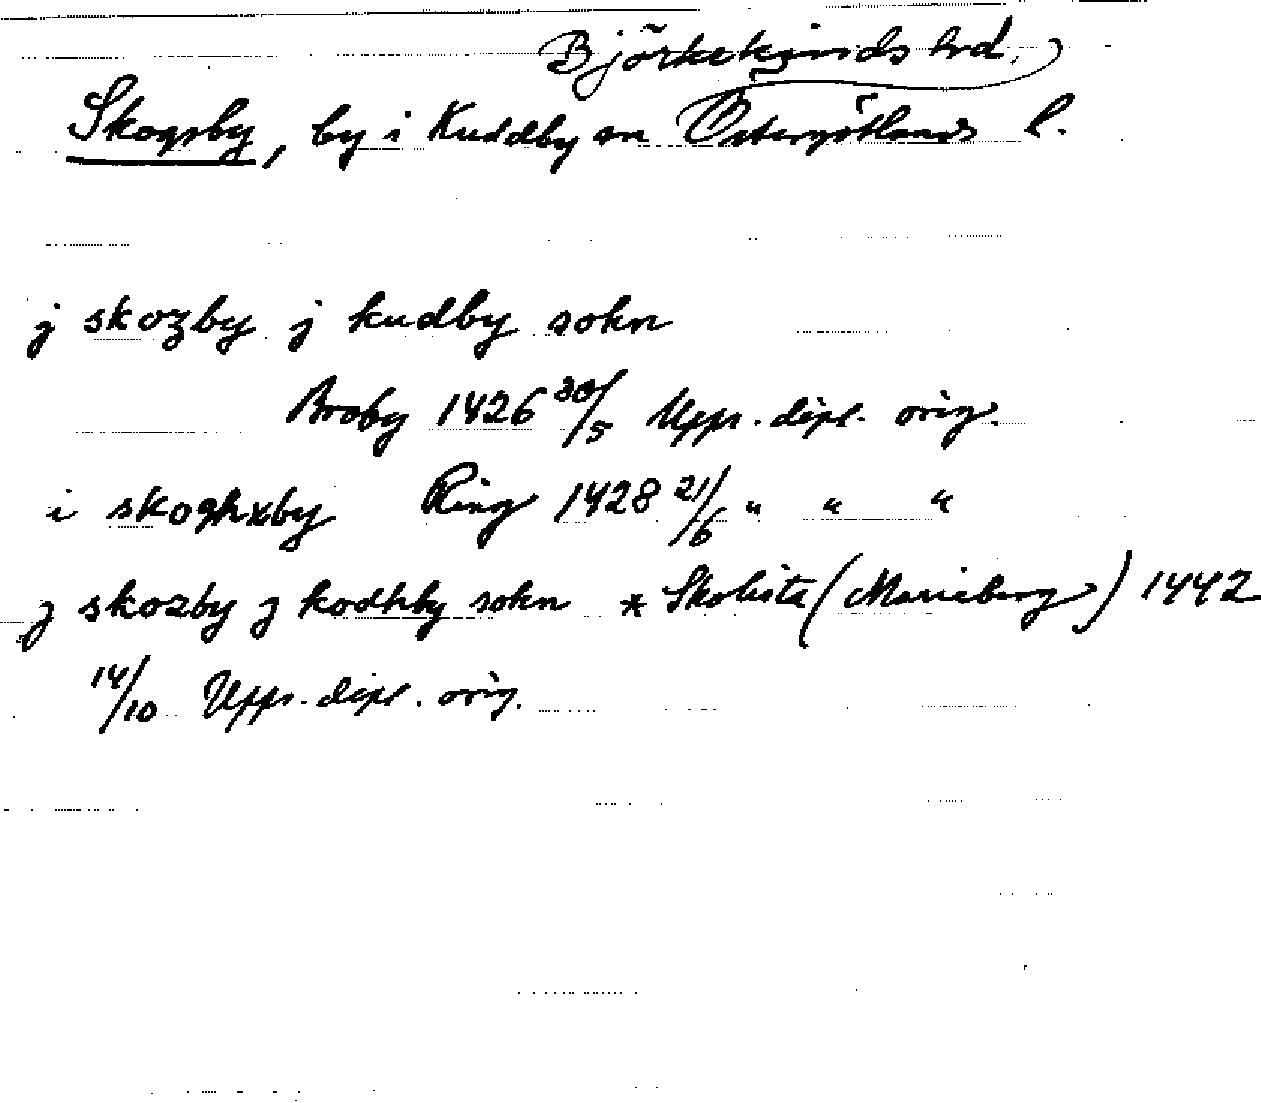 Björkekinds hrd.
Skogsby, by i Kuddby sn Östergötlands l.
j skozby j kudby sokn
Broby 1426 30/5 Upps. dipl. orig.
i skoghxby Ring 1428 21/6 " " "
j skozby j kodhby sokn * Skolista (Marieberg) 1442
14/10 Upps. dipl. orig.